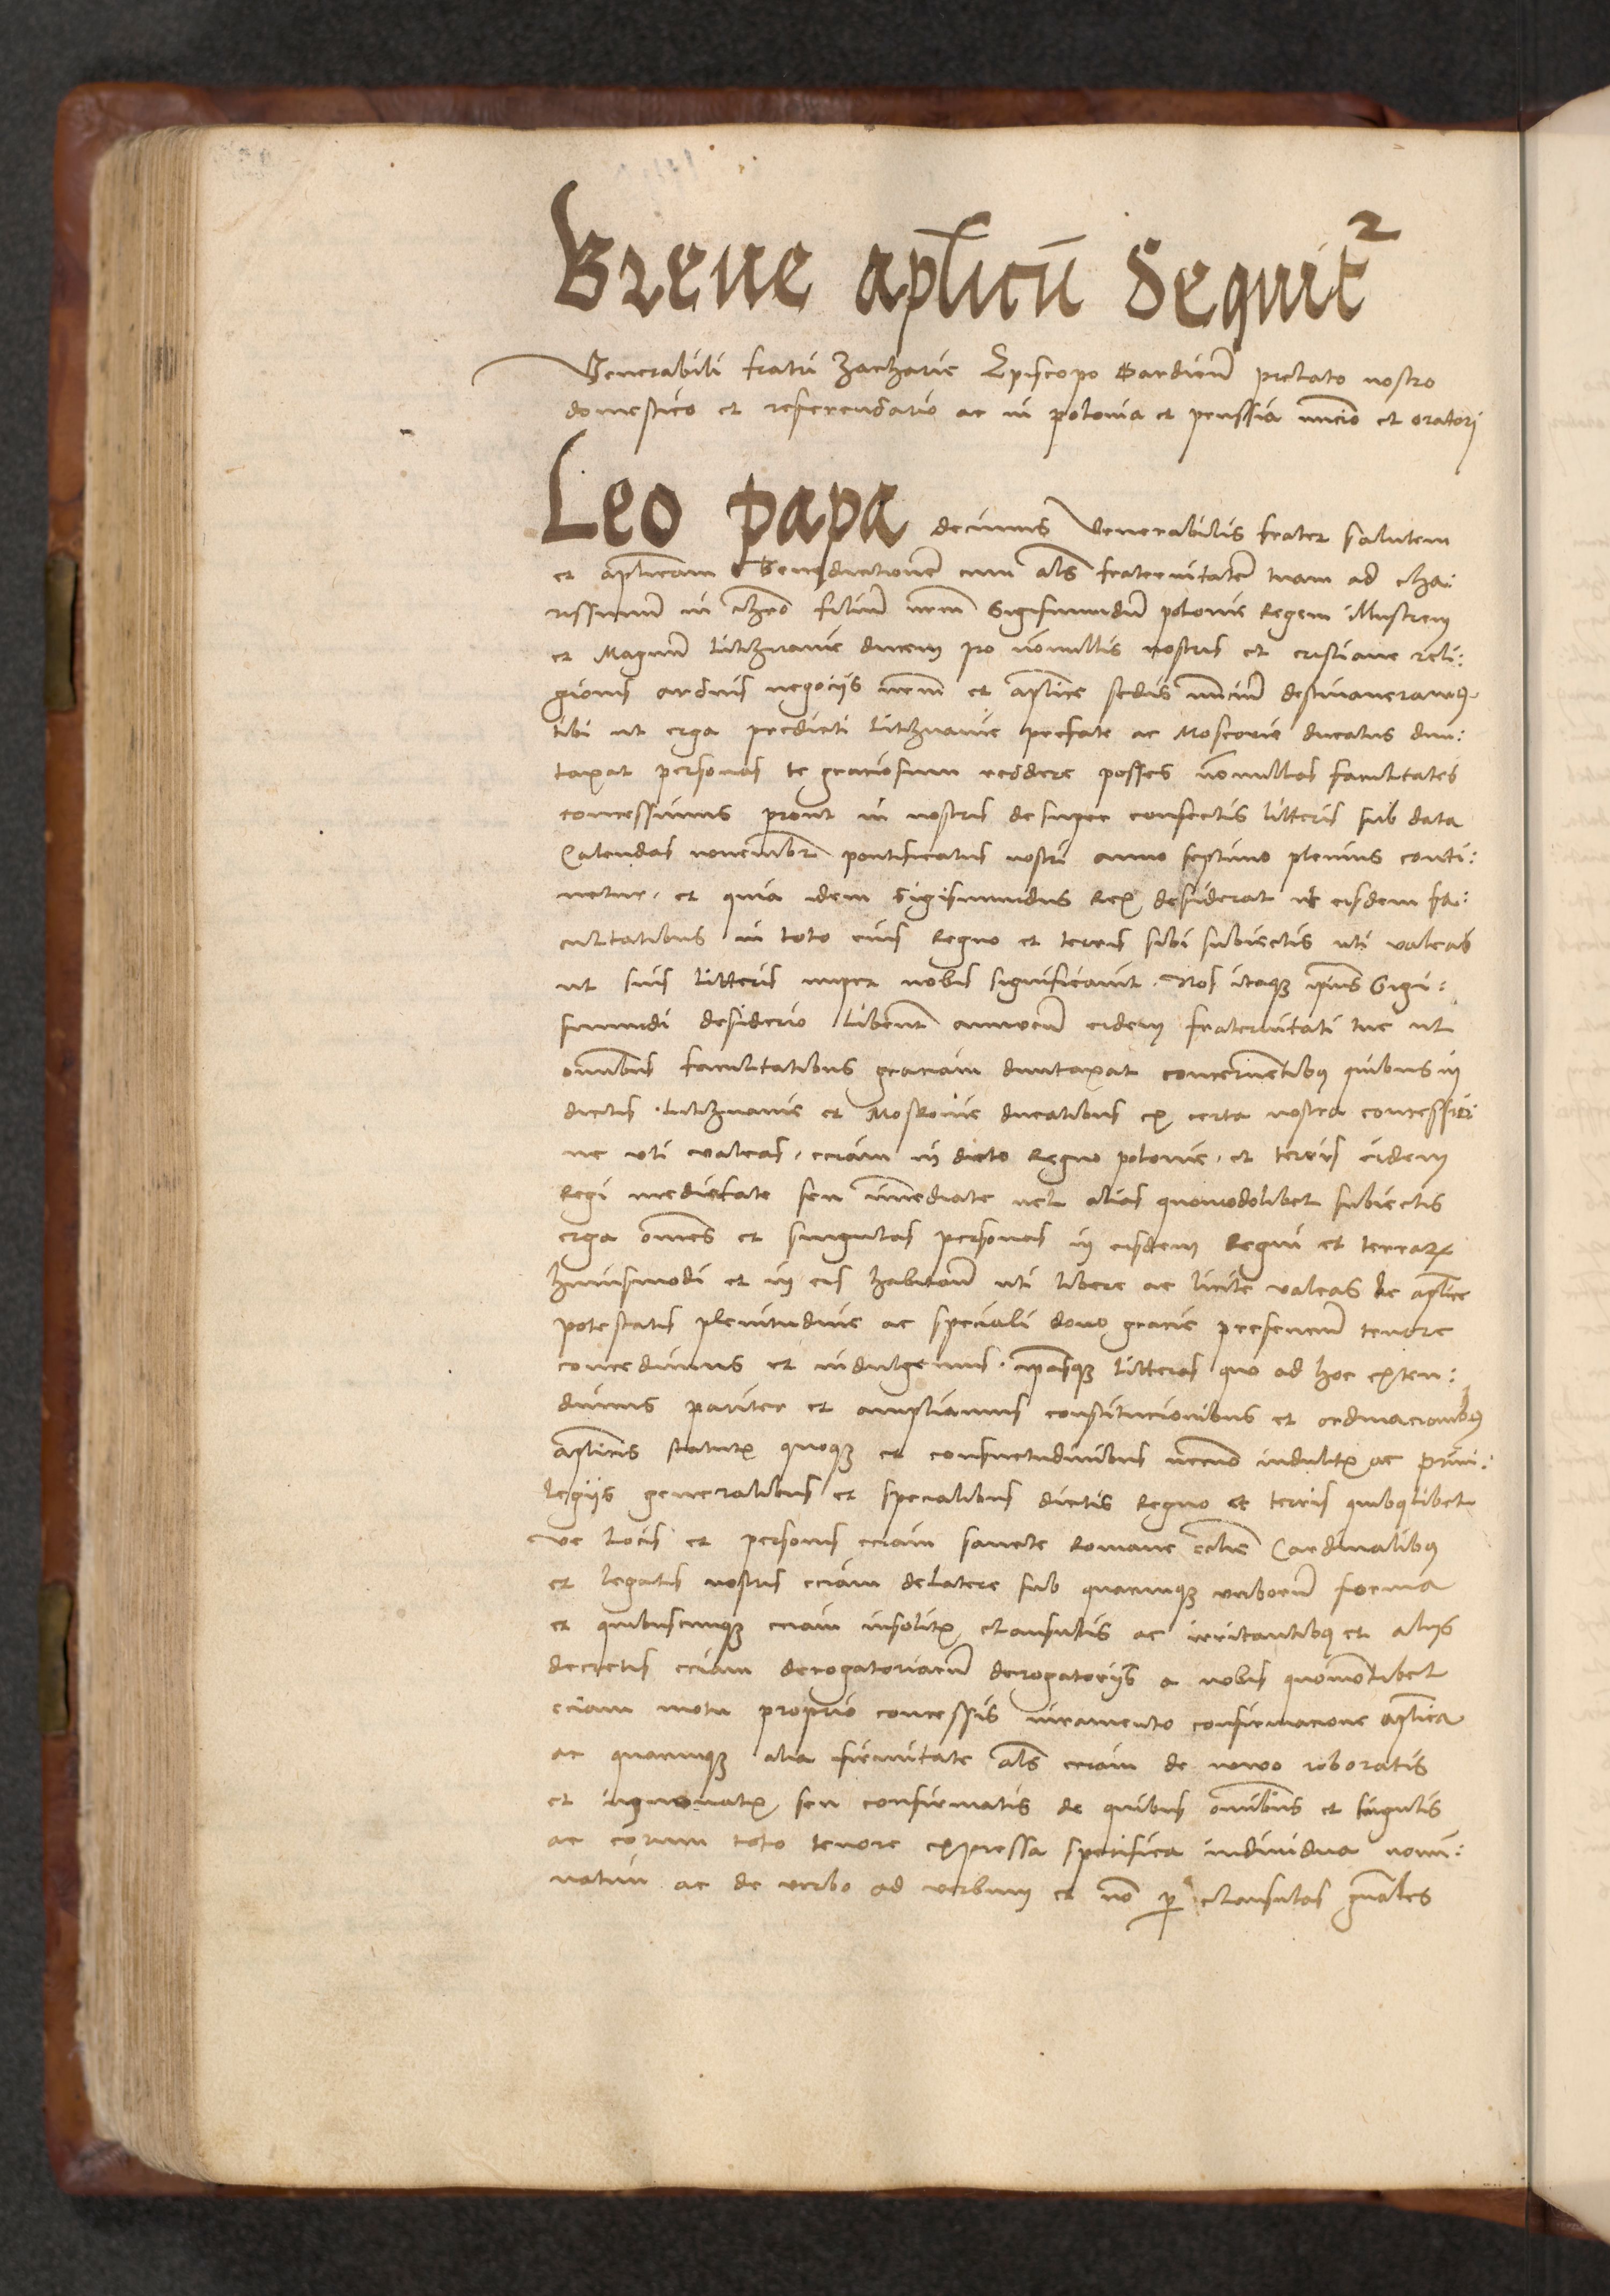 Breue aplicū Sequit²
Venerabili fratri Zacharie Episcopo Gardieñ prelato nostro
domestico et referendario ac in polonia et prussia nuncio et oratori
Leo papa decimus Venerabilis frater salutem
et aplicam Benedictionē cum als fraternitatē tuam ad cha:
rissimum in chro filium nrm̄ Sigismundū polonie Regem illustrem
et Magnū Litzuanie ducem pro nōnullis nostris et cristiane reli:
gionis arduis negocijs nrm̄ et aplice sedis nunciū destinaueramꝰ
tibi ut erga predicti Litzuanie prefate ac Moscouie ducatus dun:
taxat personas te graciosum reddere posses nōnullas facultates
concessimus prout in nostris desuper confectis litteris sub data
Calendas nouembr̄ pontificatus nostri anno septimo plenius conti:
netur. et quia idem Sigismundus Rex desiderat ut eisdem fa:
cultatibus in toto eius Regno et terris sibi subiectis uti valeas
ut suis litteris nuper nobis significauit. Nos itaqꝫ ipius Sigi:
smundi desiderio libent̄ annuen̄ eidem fraternitati tue ut
omnibus facultatibus graciam duntaxat concernētibꝰ quibus in
dictis Litzuanie et Moskouie ducatibus ex certa nostra concessio:
ne uti valeas. eciam in dicto Regno polonie. et terris eidem
Regi mediate seu īmediate uel alias quomodolibet subiectis
erga omēs et singulas personas in eisdem Regni et terrarꝫ
huiusmodi et in eis habitan̄ uti libere ac licite valeas de aplice
potestatis plenitudine ac speciali dono gracie presenciū tenore
concedimus et indulgemus. ipasqꝫ litteras quo ad hoc exten:
dimus pariter et ampliamus constitucionibus et ordinacionibꝰ
aplicis statutꝭ quoqꝫ et consuetudinibus necnō indultꝭ ac priui:
legijs generalibus et specialibus dictis Regno et terris quibꝰlibet
ve locis et personis eciam sancte Romane eclie Cardinalibꝰ
et legatis nostris eciam delatere sub quacunqꝫ verborū forma
et quibuscunqꝫ eciam insolitꝭ clausulis ac irritantibꝰ et alijs
decretis eciam derogatoriarū derogatorijs a nobis quomōlibet
eciam motu proprio concessis iuramento confirmacione aplica
ac quacunqꝫ alia firmitate als eciam de nouo roboratis
et innouatꝭ seu confirmatis de quibus omibus et singulis
ac eorum toto tenore expressa specifica indiuidua nomi:
natim ac de verbo ad verbum et nō ꝑ clausulas gn̄ales